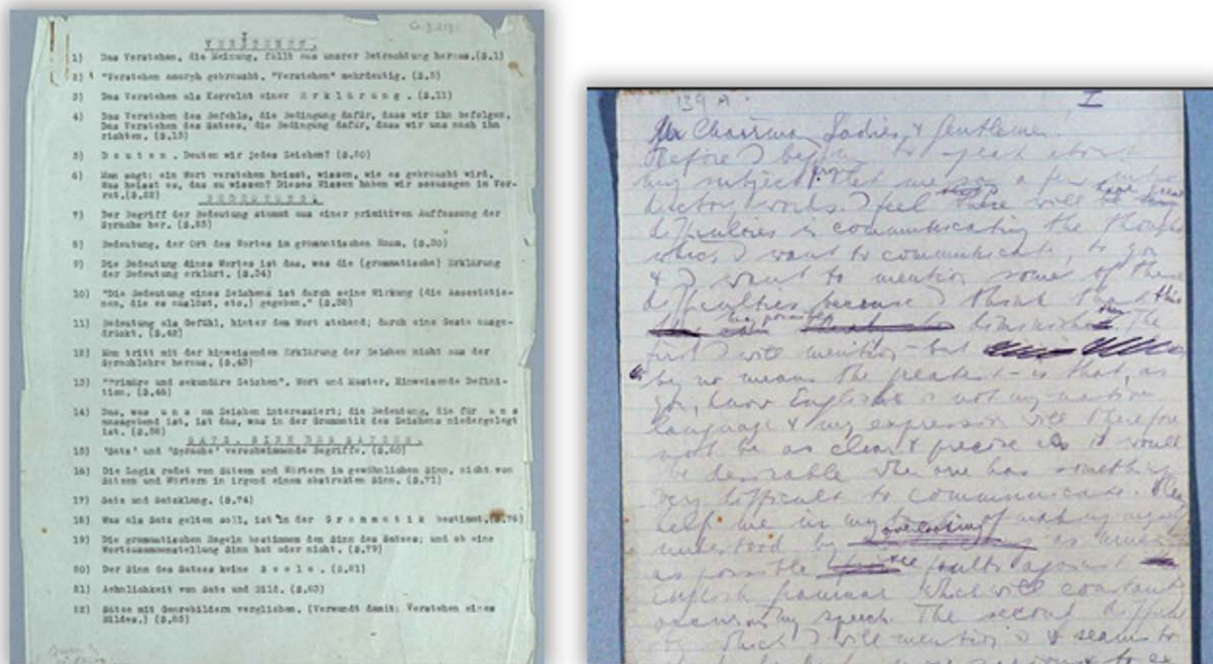 VERSTEHEN.
1) Das Verstehen, die Meinung, fällt aus unsrer Betrachtung heraus.(S.1)
2) "Verstehen amorph gebraucht. "Verstehen" mehrdeutig. (S.5)
3) Das Verstehen als Korrelat einer E r k l ä r u n g . (S.11)
4) Das Verstehen des Befehls, die Bedingung dafür, dass wir ihn befolgen.
Das Verstehen des Satzes, die Bedingung dafür, dass wir uns nach ihm
richten. (S.15)
5) D e u t e n . Deuten wir jedes Zeichen? (S.20)
6) Man sagt: ein Wort verstehen heisst, wissen, wie es gebraucht wird.
Was heisst es, das zu wissen? Dieses Wissen haben wir sozusagen im Vor-
rat.(S.22)
BEDEUTUNG.
7) Der Begriff der Bedeutung stammt aus einer primitiven Auffassung der
Sprache her. (S.25)
8) Bedeutung, der Ort des Wortes im grammatischen Raum. (S.30)
9) Die Bedeutung eines Wortes ist das, was die (grammatische) Erklärung
der Bedeutung erklärt. (S.34)
10) "Die Bedeutung eines Zeichens ist durch seine Wirkung (die Assoziatio-
nen, die es auslöst, etc.) gegeben." (S.38)
11) Bedeutung als Gefühl, hinter dem Wort stehend; durch eine Geste ausge-
drückt. (S.42)
12) Man tritt mit der hinweisenden Erklärung der Zeichen nicht aus der
Sprachlehre heraus. (S.43)
13) "Primäre und sekundäre Zeichen". Wort und Muster. Hinweisende Defini-
tion. (S.46)
14) Das, was u n s am Zeichen interessiert; die Bedeutung, die für u n s
massgebend ist, ist das, was in der Grammatik des Zeichens niedergelegt
ist. (S.58)
SATZ. SINN DES SATZES.
15) 'Satz' und 'Sprache' verschwimmende Begriffe. (S.60)
16) Die Logik redet von Sätzen und Wörtern im gewöhnlichen Sinn, nicht von
Sätzen und Wörtern in irgend einem abstrakten Sinn. (S.71)
17) Satz und Satzklang. (S.74)
18) Was als Satz gelten soll, ist in der G r a m m a t i k bestimmt.(S.76)
19) Die grammatischen Regeln bestimmen den Sinn des Satzes; und ob eine
Wortzusammenstellung Sinn hat oder nicht. (S.79)
20) Der Sinn des Satzes keine S e e l e . (S.81)
21) Aehnlichkeit von Satz und Bild. (S.83)
22) Sätze mit Genrebildern verglichen. (Verwandt damit: Verstehen eines
Bildes.) (S.85)
139 a
I
Mr Chairman, Ladies, & Gentlemen!
Before I begin to speak about
my subject let me say a few intro
ductory words. I feel there will be
difficulties in communicating the thoughts
which I want to communicate, to you
& I want to mention some of these
difficulties because I think that this
may possibly diminish them. The
first I will mention - but
by no means the greatest - is that, as
you know English is not my native
language & my expression will therefore
not be as clear & precise as it would
be desirable when one has something
very difficult to communicate.
help me in my task of making myself
understood by overlooking as much
as possible the faults against
English grammar which will constantly
occur in my speech. The second
which I will mention is & seems to